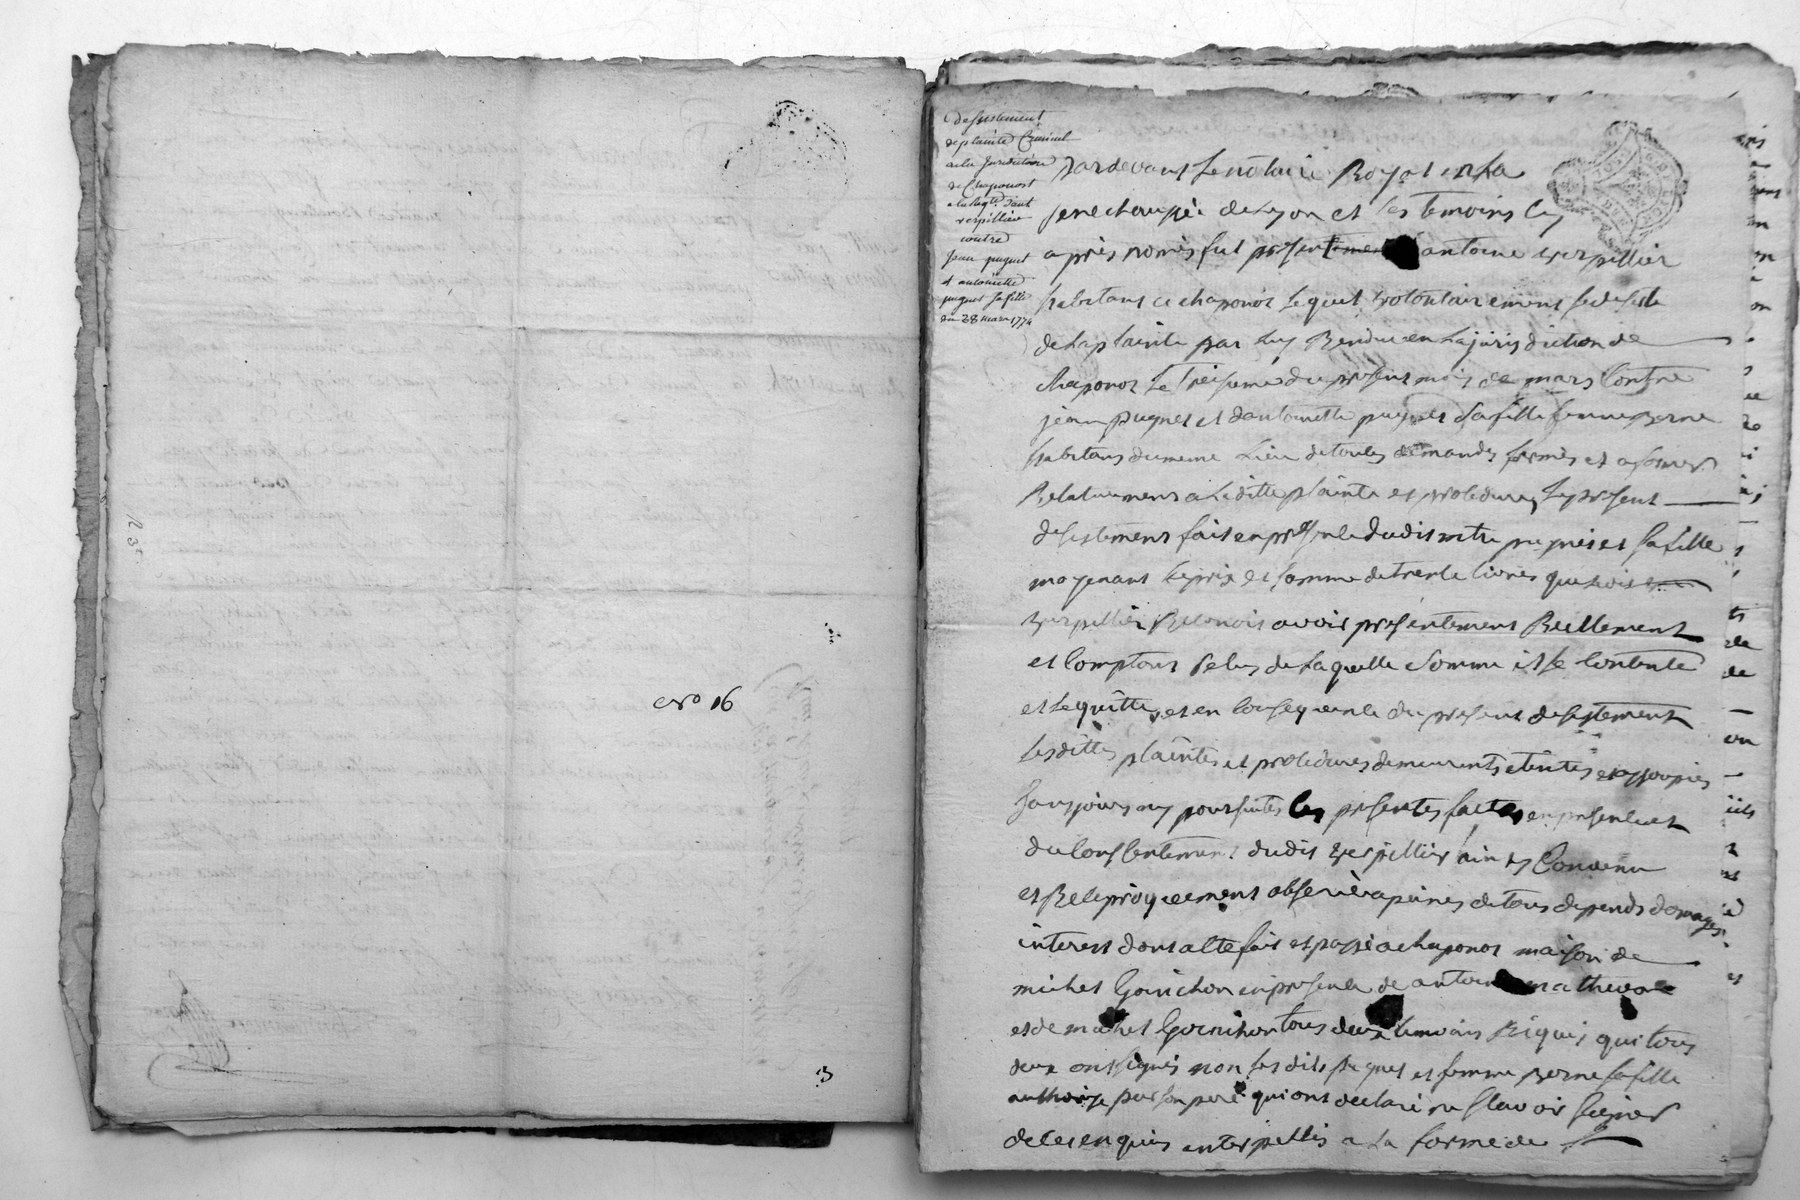 N.º 16
3
desistement
de plainte Criminel
a la Juridiction
de Chaponost
a la Reqte d'ant
verpillier
contre
Jean puynet
& antoinette
puynet sa fille
du 28 mars 1774
Pardevant Le notaire Royal en La
senechaussée de Lyon et Les temoins cy
après nomès fut presentement antoine verpillier
habitant a chaponos Lequel volontairement se desiste
de La plainte par Luy Rendue en La jurisdiction de
chaponos Le treisieme du present mois de mars Contre
jean Puynet et d'antoinette puynet sa fille femme verne
habitans du meme Lieu de toutes demandes formès et a former
Relativement a Laditte plainte et procedures Le present
desistement fait en presence dudit puynet et sa fille
moyenant Le prix et somme de trente livres que
verpillier Reconois avoir presentement Reellement
et Comptant Recu de Laquelle somme il se Contente
et Le quitte, et en Consequence du present desistement
Lesdittes plaintes et procedures demeurents eteintes et assoupies
sans poursuites les presentes faites en presence et
du Consentement dudit verpillier ainsy Convenu
et Reciproquement observè a peines de tous depends domages
interest dont acte fait et passé a chaponos maison de
michel Gornichon en presence de antoine mathevon
et de michel Gornichon tous deux temoins Requis qui tous
deux ont signés non Lesdits Puynet et femme verne sa fille
authorise par son pere qui ont declaré ne sçavoir signer
de ce enquis interpellés a La forme de